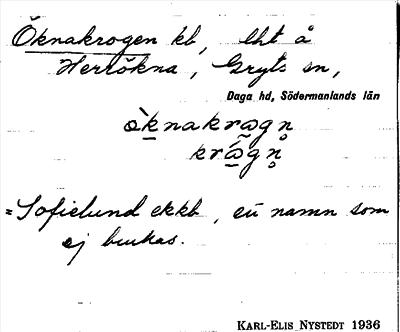 Öknakrogen kb, lht å
Herrökna, Gryts sn,
Daga hd, Södermanlands län
ö̀knakrωgn̥
krώgn̥
= Sofielund ekkb, eü namn som
ej brukas.
KARL-ELIS NYSTEDT 1936